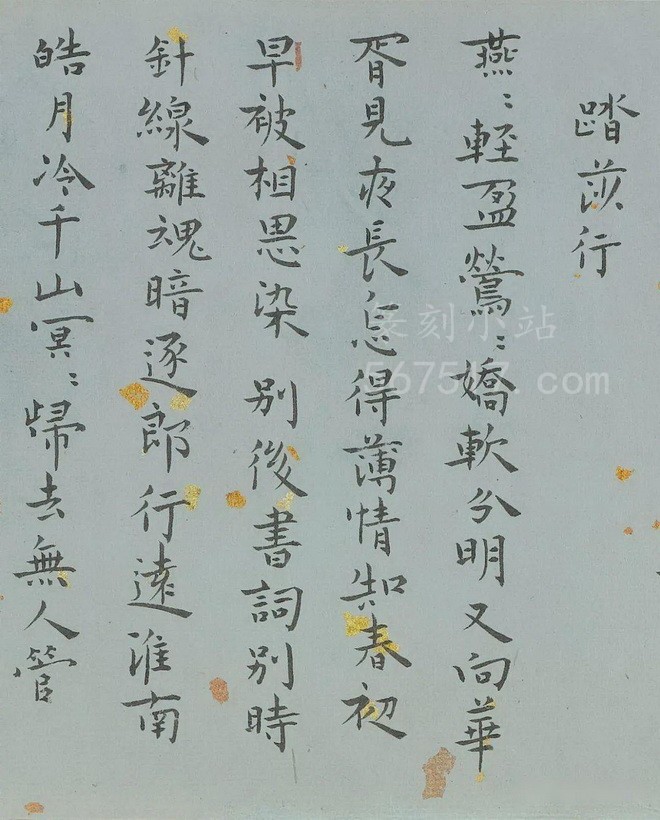 踏莎行
燕〻輕盈鶯〻嬌軟分明又向華
胥見夜長怎得薄情知春初
早被相思染 別後書詞別時
針線離魂暗逐郎行遠淮南
皓月冷千山冥〻歸去無人管
篆刻小站